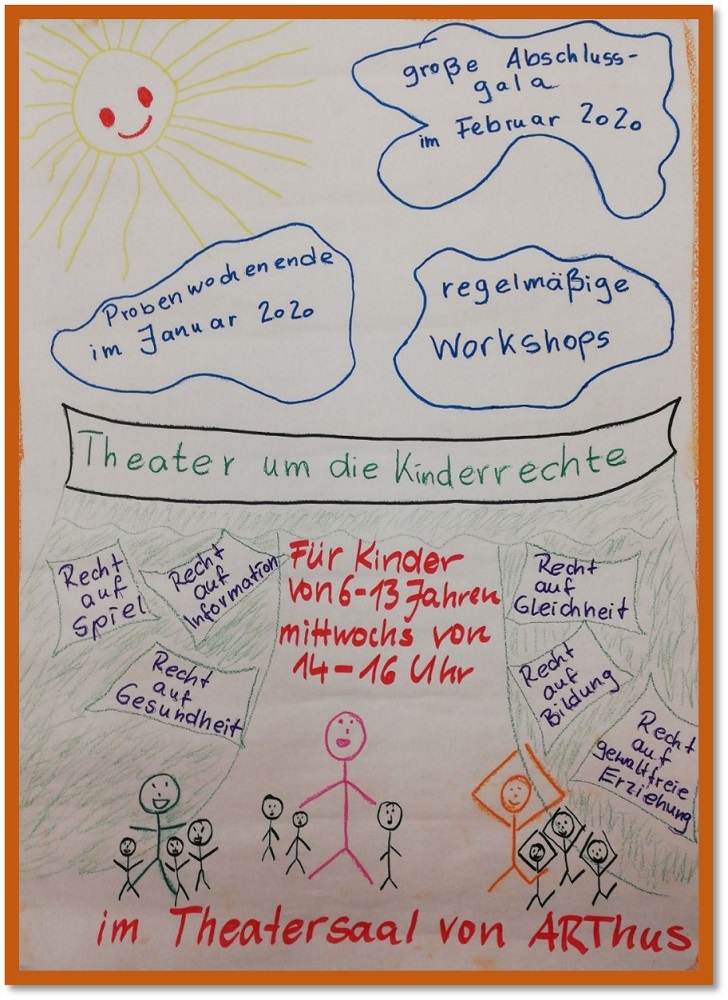 große Abschluss-
gala
im Februar 2020
Probenwochenende
im Januar 2020
regelmäßige
Workshops
Theater um die Kinderrechte
Recht
auf
Spiel
Recht
auf
Information
Für Kinder
von 6-13 Jahren
mittwochs von
14-16 Uhr
Recht
auf
Gleichheit
Recht
auf
Gesundheit
Recht
auf
Bildung
Recht
auf
gewaltfreie
Erziehung
im Theatersaal von ARThus